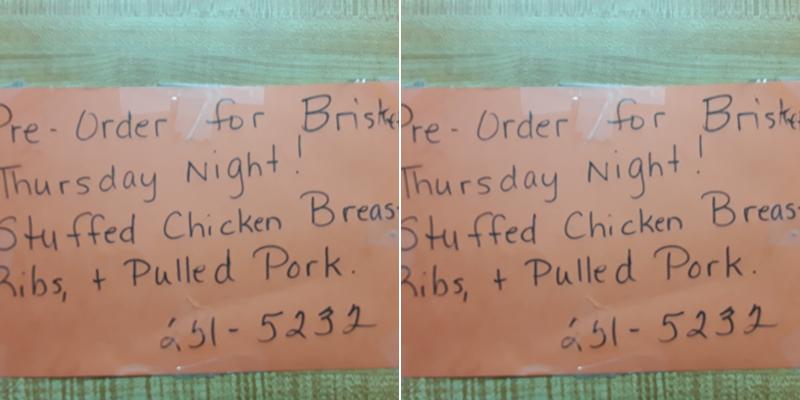 Pre-Order for Briske
Thursday Night!
Stuffed Chicken Breas
Ribs, + Pulled Pork.
251-5232
Pre-Order for Briske
Thursday Night!
Stuffed Chicken Breas
Ribs, + Pulled Pork.
251-5232